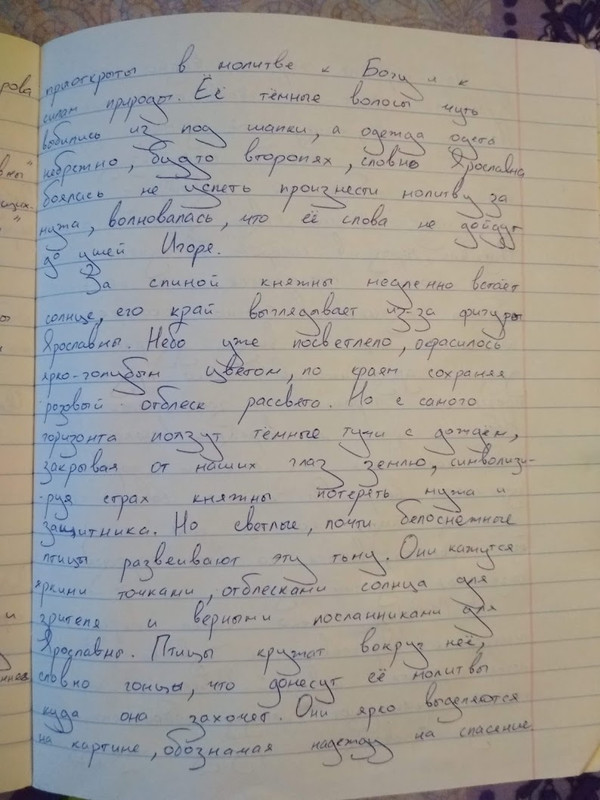 приоткрыты в молитве к Богу и к
силам природы. Её тёмные волосы чуть
выбились из под шапки, а одежда одета
небрежно, будто второпях, словно Ярославна
боялась не успеть произнести молитву за
мужа, волновалась, что её слова не дойдут
до ушей Игоря.
За спиной княжны медленно встаёт
солнце, его край выглядывает из-за фигуры
Ярославны. Небо уже посветлело, окрасилось
ярко-голубым цветом, по краям сохраняя
розовый отблеск рассвета. Но с самого
горизонта ползут тёмные тучи с дождём,
закрывая от наших глаз землю, символизи-
руя страх княжны потерять мужа и
защитника. Но светлые, почти белоснежные
птицы развеивают эту тьму. Они кажутся
яркими точками, отблесками солнца для
зрителя и верными посланниками для
Ярославны. Птицы кружат вокруг неё,
словно гонцы, что донесут её молитвы
куда она захочет. Они ярко выделяются
на картине, обозначая надежду на спасение.